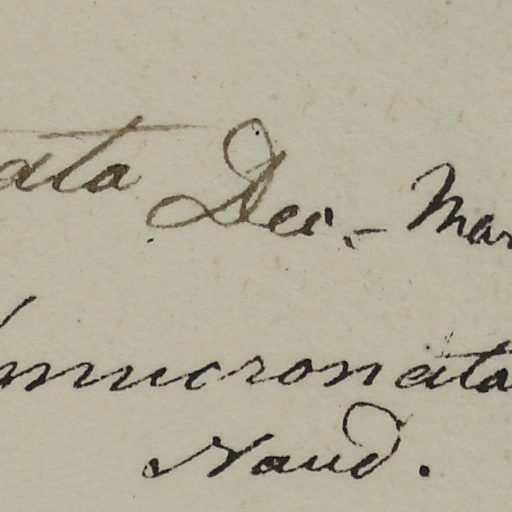 ata Des. - Mar
mucronata
Naud.